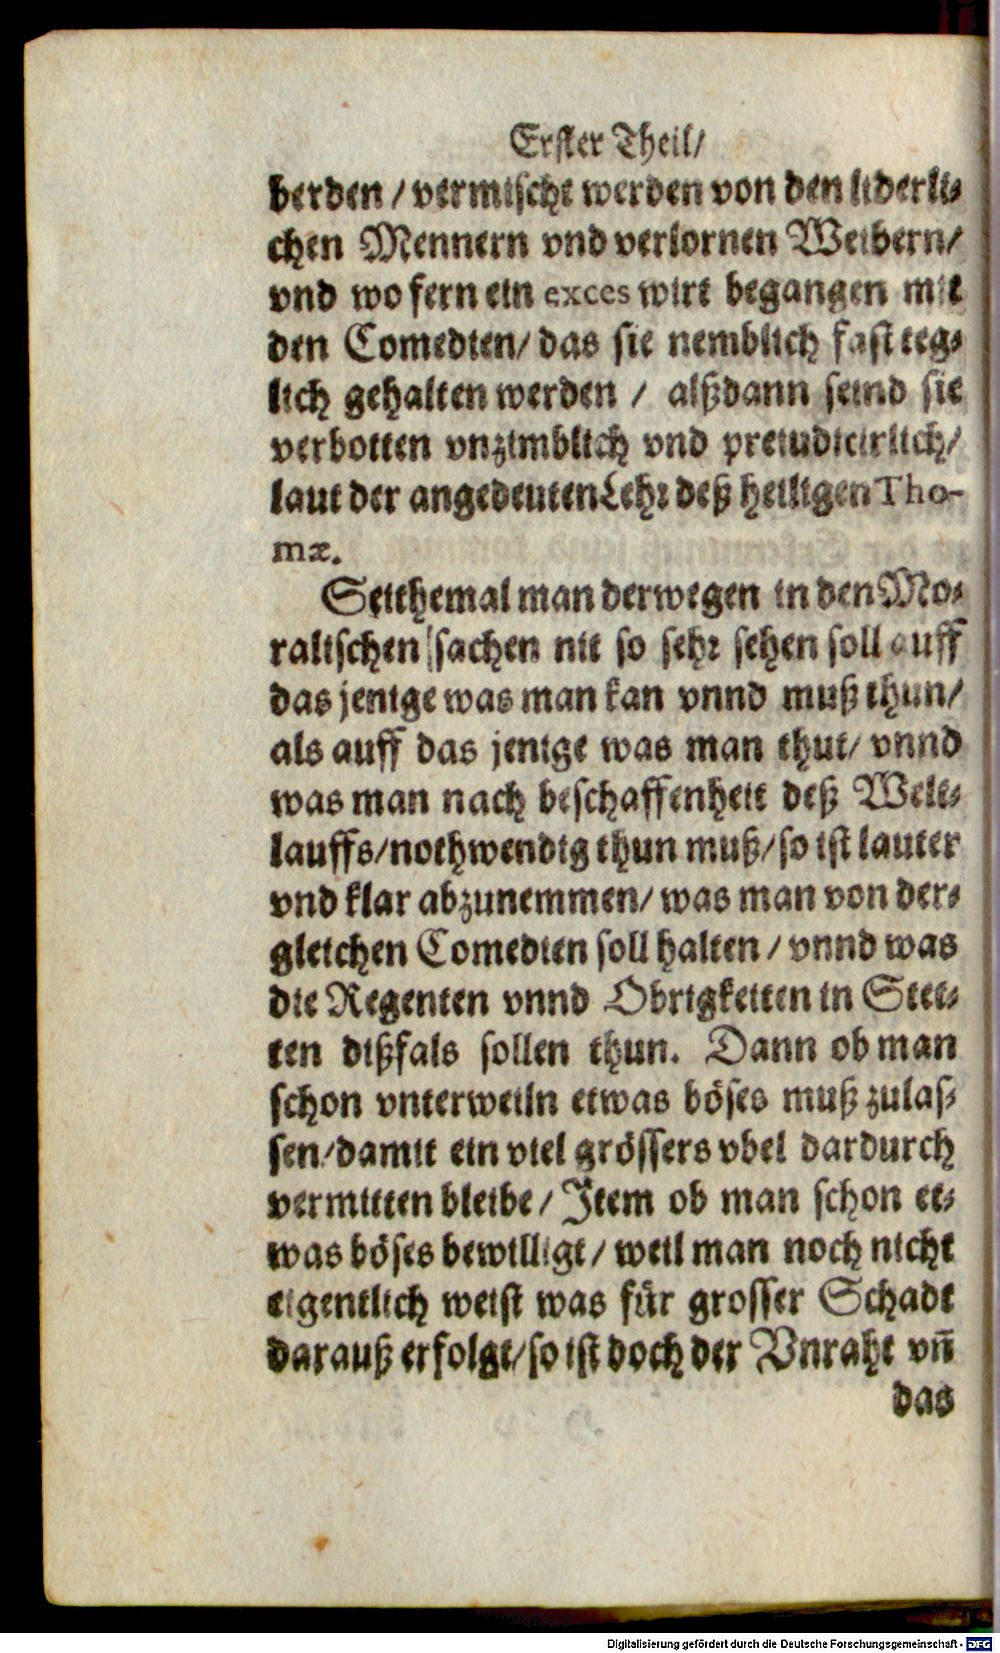 Erster Theil/
berden / vermischt werden von den liderli-
chen Mennern vnd verlornen Weibern/
vnd wo fern ein exces wirt begangen mit
den Comedien/ das sie nemblich fast teg-
lich gehalten werden / alßdann seind sie
verbotten vnzimblich vnd preiudicirlich/
laut der angedeuten Lehr deß heiligen Tho-
mæ.
Seithemal man derwegen in den Mo-
ralischen sachen nit so sehr sehen soll auff
das jenige was man kan vnnd muß thun/
als auff das jenige was man thut/ vnnd
was man nach beschaffenheit deß Welt-
lauffs/nothwendig thun muß/so ist lauter
vnd klar abzunemmen/ was man von der-
gleichen Comedien soll halten / vnnd was
die Regenten vnnd Obrigkeiten in Stet-
ten dißfals sollen thun. Dann ob man
schon vnterweiln etwas böses muß zulas-
sen/damit ein viel grössers vbel dardurch
vermitten bleibe/ Item ob man schon et-
was böses bewilligt/ weil man noch nicht
eigentlich weist was für grosser Schade
darauß erfolgt/so ist doch der Vnraht vñ
das
Digitalisierung gefördert durch die Deutsche Forschungsgemeinschaft - DFG